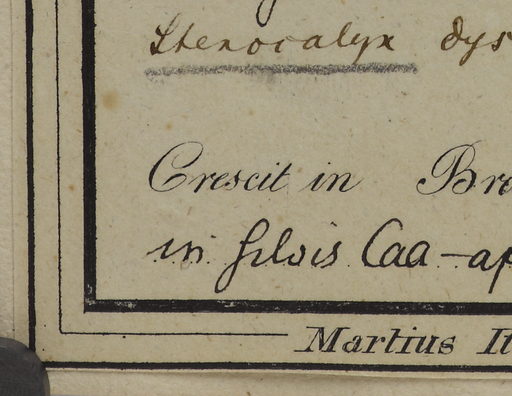 Stenocalyx dys
Crescit in Bre
in silvis Caa-ap
Martius It